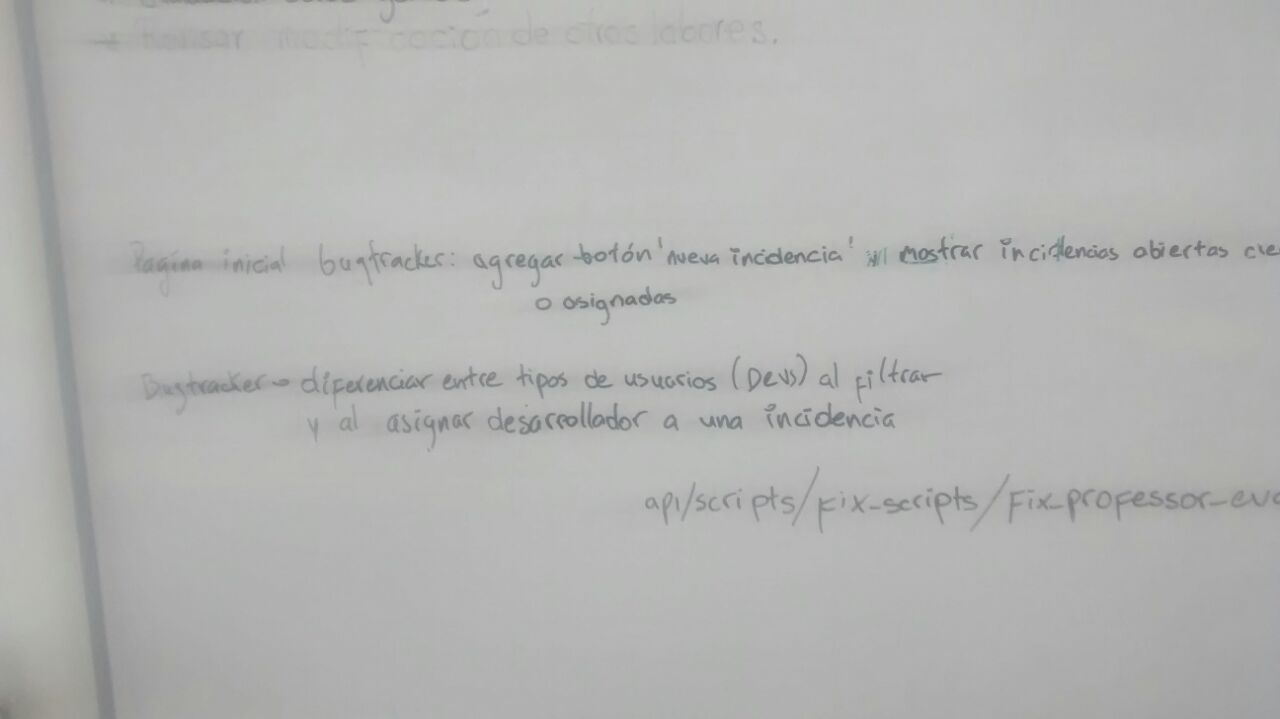 modificación de otros labores.
Pagina inicial bugtracker: agregar botón 'nueva incidencia' y mostrar incidencias abiertas cre
o asignadas
Bugtracker → diferenciar entre tipos de usuarios (Devs) al filtrar
y al asignar desarrollador a una incidencia
api/scripts/fix_scripts/fix_professor_eva